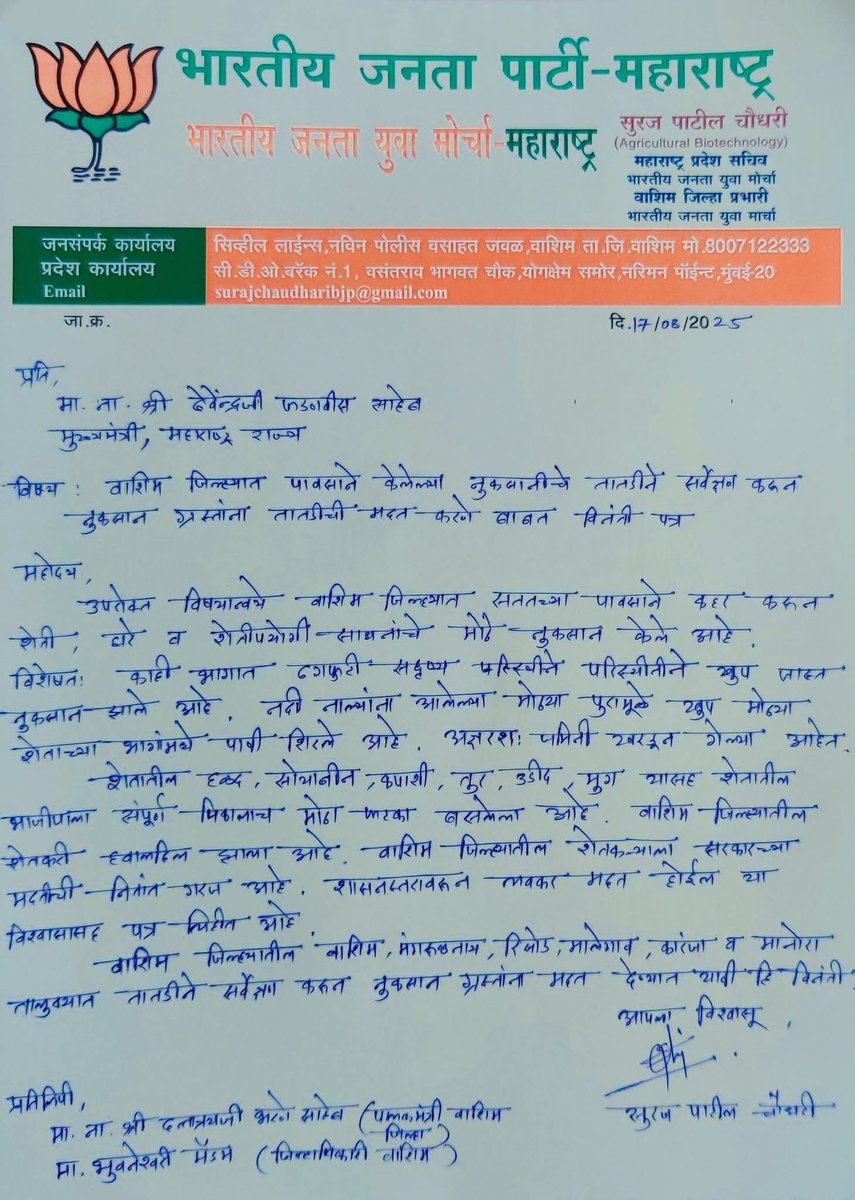 भारतीय जनता पार्टी-महाराष्ट्र
भारतीय जनता युवा मोर्चा-महाराष्ट्र
सुरज पाटील चौधरी
(Agricultural Biotechnology)
महाराष्ट्र प्रदेश सचिव
भारतीय जनता युवा मोर्चा
वाशिम जिल्हा प्रभारी
भारतीय जनता युवा मार्चा
जनसंपर्क कार्यालय सिव्हील लाईन्स,नविन पोलीस वसाहत जवळ,वाशिम ता.जि.वाशिम मो.8007122333
प्रदेश कार्यालय सी.डी.ओ.बॅरॅक नं.1, वसंतराव भागवत चौक,योगक्षेम समोर,नरिमन पॉईन्ट,मुंबई-20
Email surajchaudharibjp@gmail.com
जा.क्र. दि.17/08/2025
प्रति,
मा. ना. श्री देवेंद्रजी फडणवीस साहेब
मुख्यमंत्री, महाराष्ट्र राज्य
विषय : वाशिम जिल्ह्यात पावसाने केलेल्या नुकसानीचे तातडीने सर्वेक्षण करून
नुकसान ग्रस्तांना तातडीची मदत करणे बाबत विनंती पत्र
महोदय,
उपरोक्त विषयान्वये वाशिम जिल्ह्यात सततच्या पावसाने कहर करून
शेती, घरे व शेतीपयोगी साधनांचे मोठे नुकसान केले आहे.
विशेषतः काही भागात ढगफुटी सदृष्य परिस्थीने परिस्थीतीने खुप जास्त
नुकसान झाले आहे. नदी नाल्यांना आलेल्या मोठ्या पुरामूळे खुप मोठ्या
शेताच्या भागांमधे पाणी शिरले आहे. अक्षरशः जमिनी खरडून गेल्या आहेत.
शेतातील हळद, सोयाबीन, कपाशी, तुर, उडीद, मुग यासह शेतातील
भाजीपाला संपूर्ण पिकालाच मोठा फटका बसलेला आहे. वाशिम जिल्ह्यातील
शेतकरी हवालदिल झाला आहे. वाशिम जिल्ह्यातील शेतकऱ्याला सरकारच्या
मदतीची नितांत गरज आहे. शासनस्तरावरून लवकर मदत होईल या
विश्वासासह पत्र लिहीत आहे.
वाशिम जिल्ह्यातील वाशिम, मंगरूळनाथ, रिसोड, मालेगाव, कारंजा व मानोरा
तालुक्यात तातडीने सर्वेक्षण करून नुकसान ग्रस्तांना मदत देण्यात यावी हि विनंती.
आपला विश्वासू,
सुरज पाटील चौधरी
प्रतिलिपी,
मा. ना. श्री दत्तात्रयजी भरणे साहेब (पालकमंत्री वाशिम
जिल्हा)
मा. भुवनेश्वरी मॅडम (जिल्हाधिकारी वाशिम)